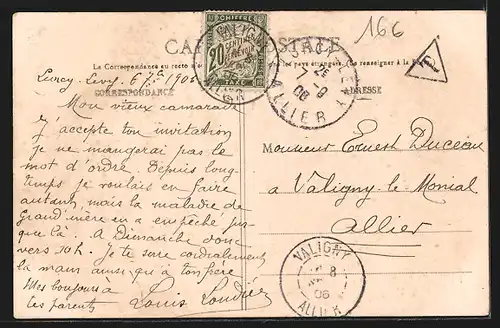 166
CARTE POSTALE
La Correspondance au recto n'est pas
pays étrangers. (Se renseigner à la Poste)
CORRESPONDANCE
ADRESSE
CHIFFRE
20
TAXE
VALIGNY
ALLIER
LURCY-LEVY
7 - 9
06
ALLIER
T
Lurcy-Levy. 6 7bre 1906
Mon vieux camarade
J'accepte ton invitation
je ne mangerai pas le
mot d'ordre. Depuis long-
temps je voulais en faire
autant, mais la maladie de
Grand'mère en a empêché jus-
que là. A Dimanche donc
vers 10h. Je te serre cordialement
la main ainsi que à ton frère
Mes bonjours à
tes parents
Louis
Monsieur Ernest Duceau
à Valigny-le-Monial
Allier
VALIGNY
8
06
ALLIER